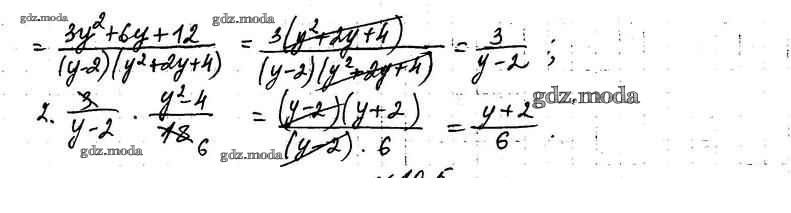 gdz.moda gdz.moda
= (3y²+6y+12)/((y-2)(y²+2y+4)) = 3(y²+2y+4)/((y-2)(y²+2y+4)) = 3/(y-2) ;
gdz.moda
2. 3/(y-2) · (y²-4)/18 6 = (y-2)(y+2)/((y-2)·6) = (y+2)/6 .
gdz.moda gdz.moda